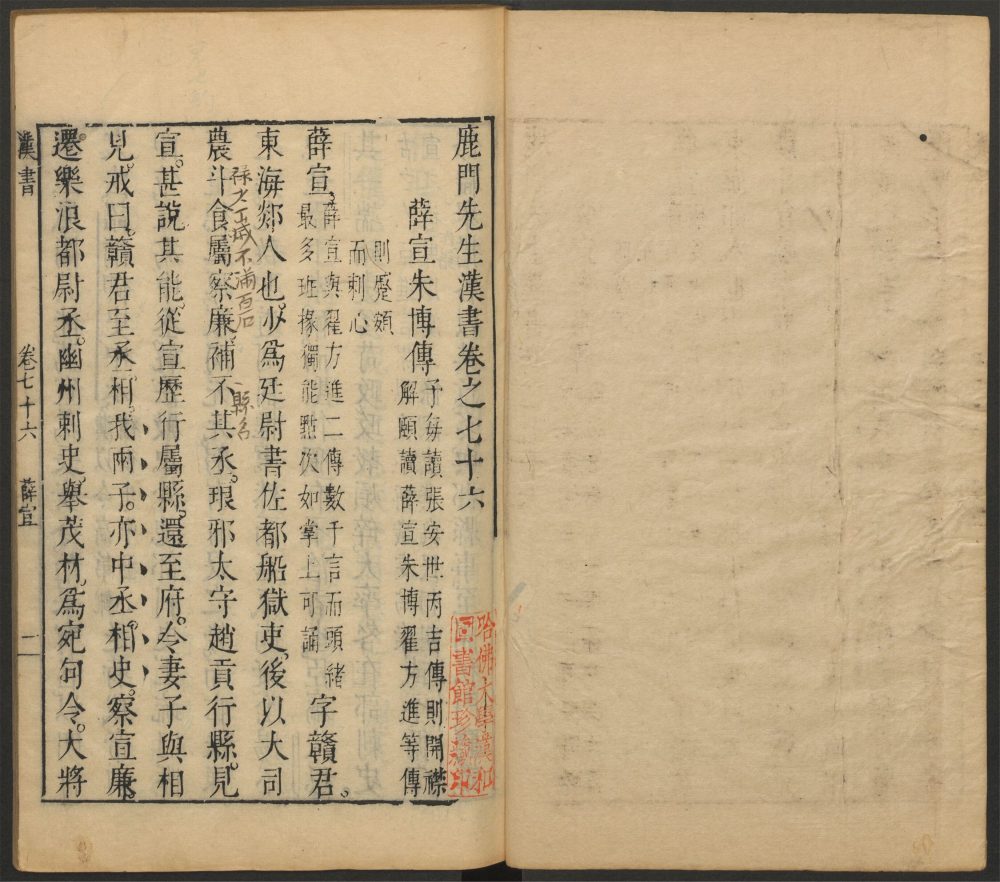 鹿門先生漢書卷之七十六
薛宣朱博傳
予每讀張安世丙吉傳則開襟
解頤讀薛宣朱博翟方進等傳
則蹙頞
而刺心
薛宣
薛宣與翟方進二傳數千言而頭緒
最多班掾獨能點次如掌上可誦
字贛君。
東海郯人也。少為廷尉書佐都船獄吏。後以大司
農斗食屬察廉。補不其丞。琅邪太守趙貢行縣。見
祿 不滿百石
縣名
宣。甚說其能。從宣歷行屬縣。還至府。令妻子與相
見。戒曰。贛君至丞相。我兩子。亦中丞相史。察宣廉。
遷樂浪都尉丞。幽州刺史。舉茂材。為宛句令。大將
漢書
卷七十六
薛宣
一
哈佛大學漢和
圖書館珍藏印